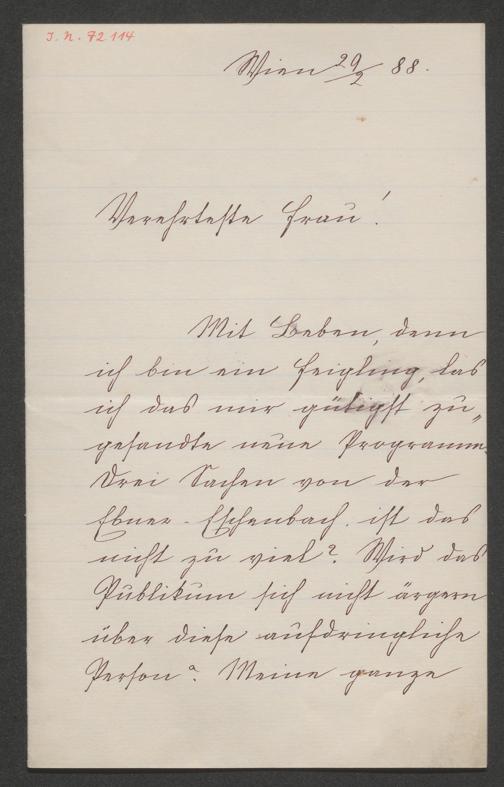 J. N. 72 114
Wien 29/2 88.
Verehrteste Frau!
Mit Beben, denn
ich bin ein Feigling, las
ich das mir gütigst zu„
gesandte neue Programm.
Drei Sachen von der
Ebner-Eschenbach. ist das
nicht zu viel? Wird das
Publikum sich nicht ärgern
über diese aufdringliche
Person? Meine ganze